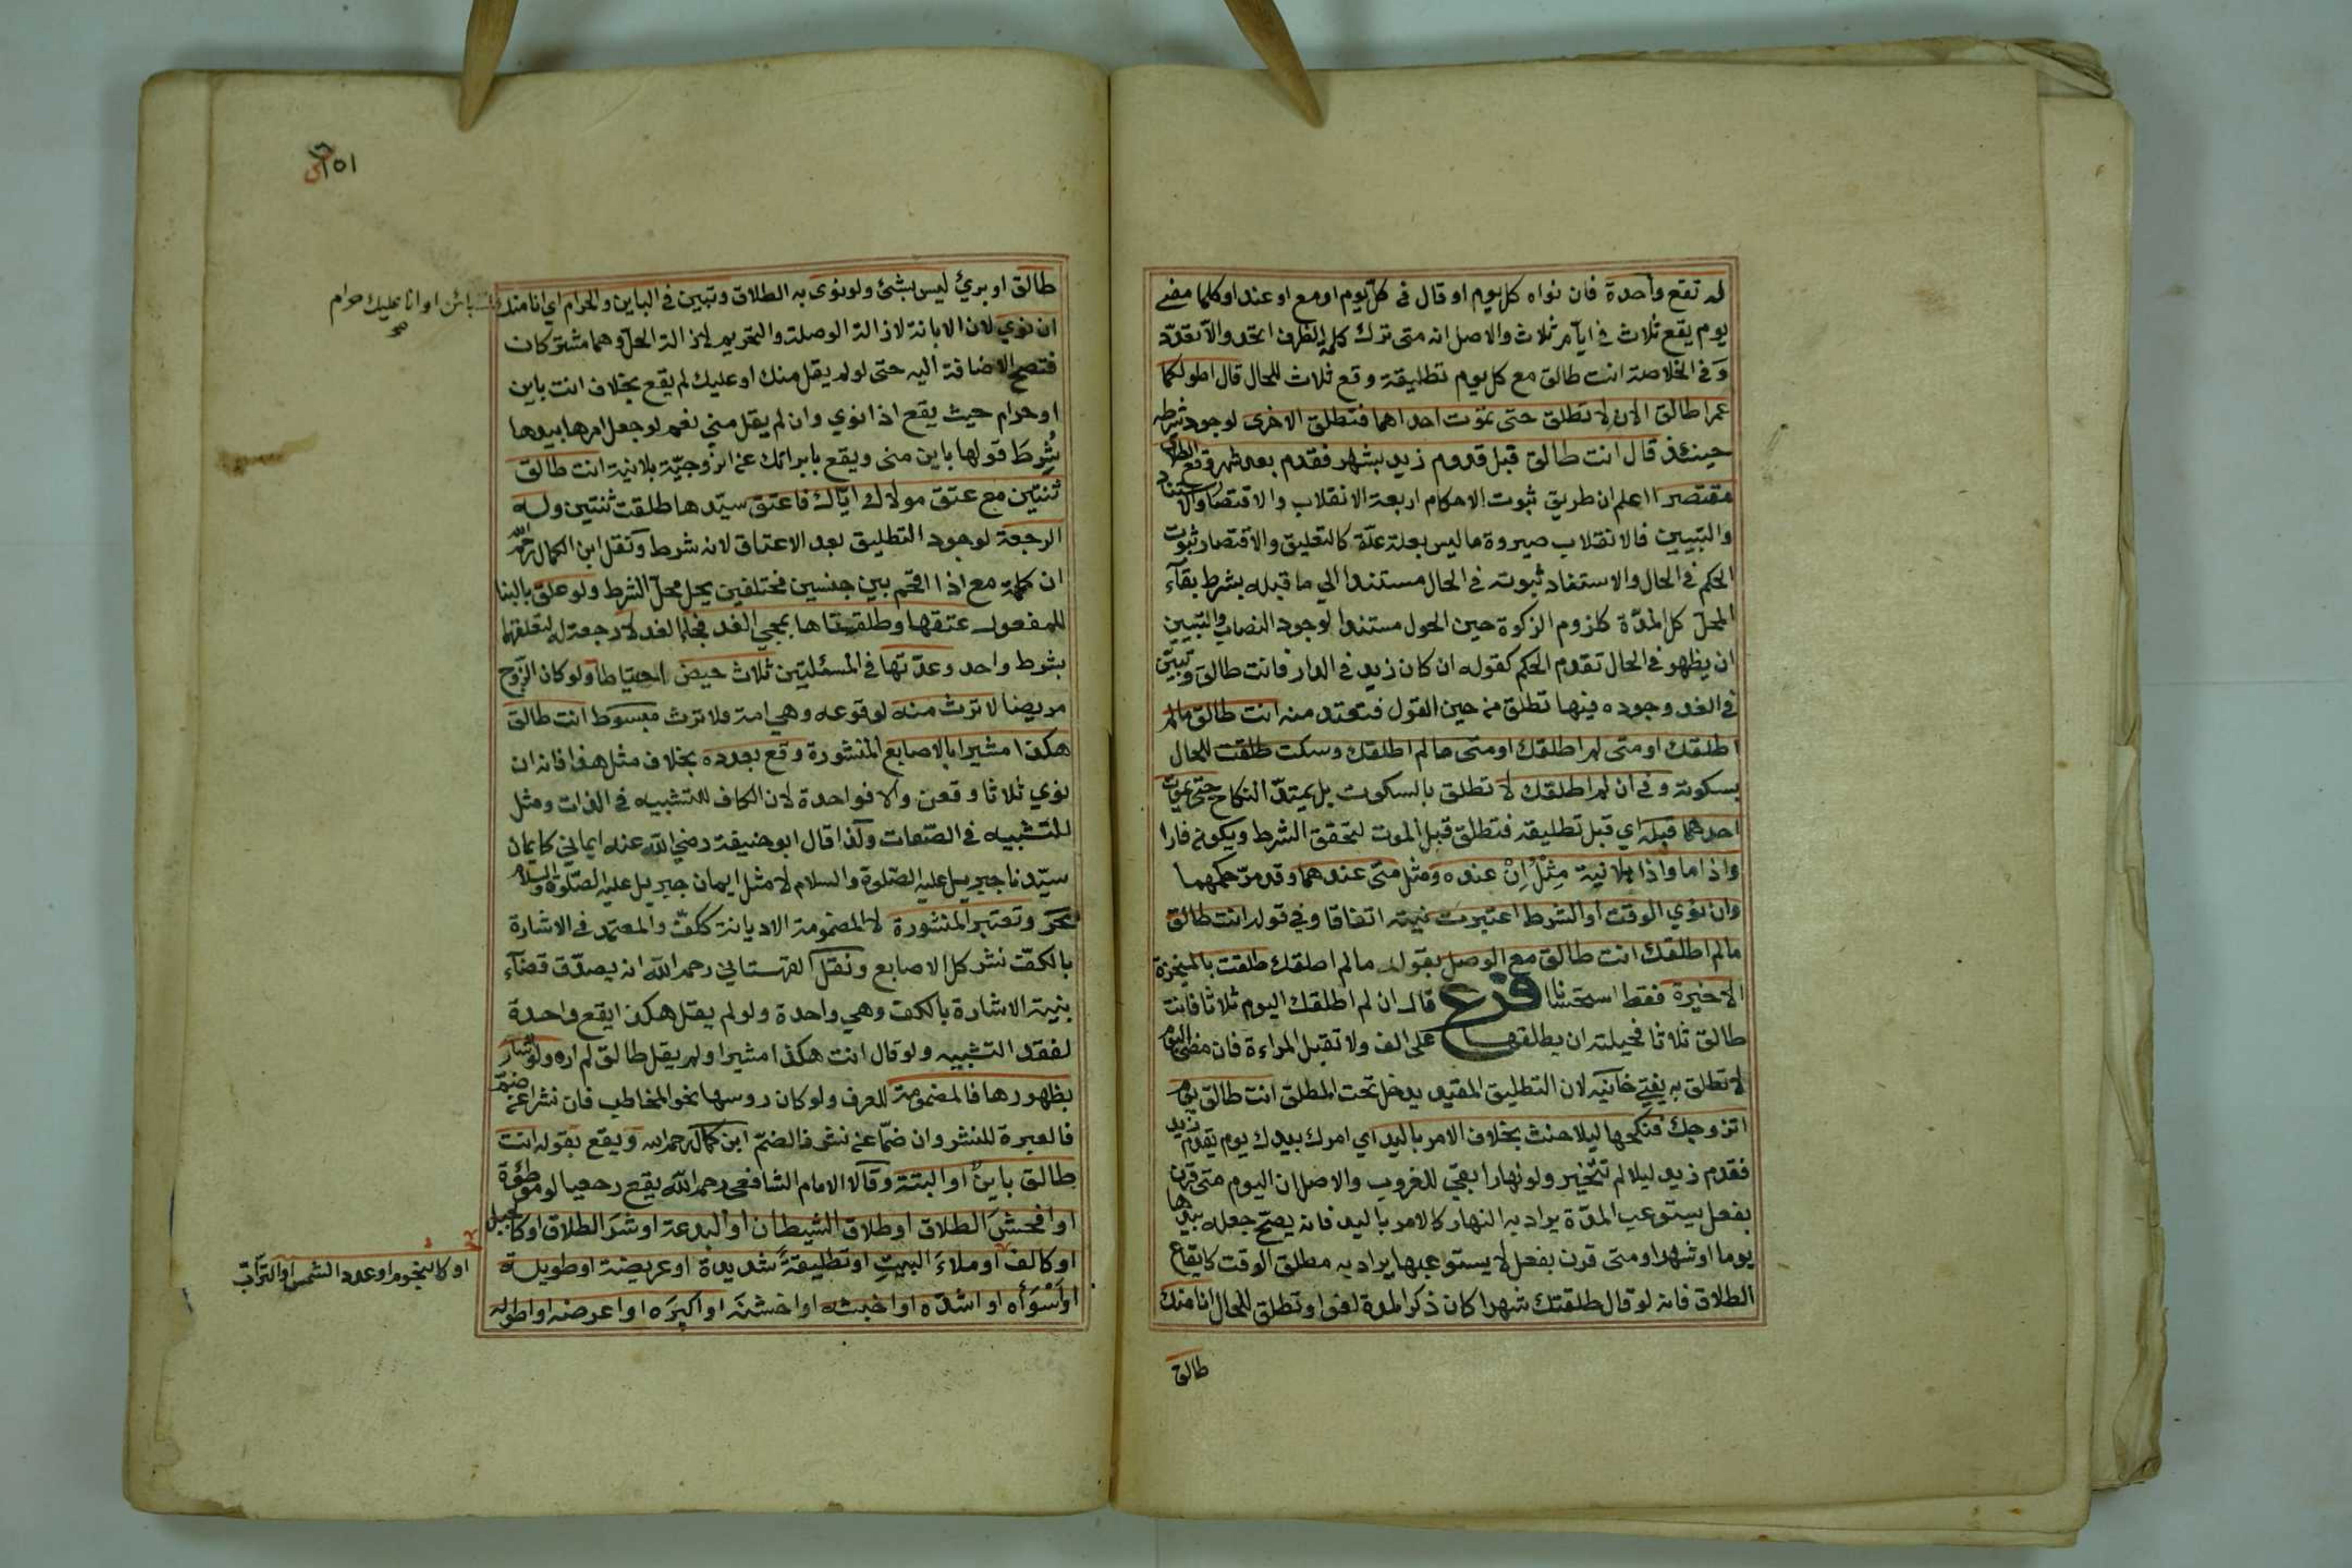 له تقع واحدة فان نواه كل يوم او قال في كل يوم او مع او عند او كلما مضى
يوم يقع ثلاث في ايام ثلاث والاصل انه متى ترك كلمة الظرف اتحد والا تعدد
وفي الخلاصة انت طالق مع كل يوم تطليقة وقع ثلاث للحال قال اطولكما
عمرا طالق الان لا تطلق حتى تموت احداهما فتطلق الاخرى لوجود شرطه
حينئذ قال انت طالق قبل قدوم زيد بشهر فقدم بعد شهر وقع الطلاق
مقتصرا اعلم ان طريق ثبوت الاحكام اربعة الانقلاب والاقتصار والاستناد
والتبيين فالانقلاب صيروة ما ليس بعلة علة كالتعليق والاقتصار ثبوت
الحكم في الحال والاستناد ثبوته في الحال مستندا الي ما قبله بشرط بقآء
المحل كل المدة كلزوم الزكوة حين الحول مستندا لوجود النصاب والتبيين
ان يظهر في الحال تقدم الحكم كقوله ان كان زيد في الدار فانت طالق وتبين
في الغد وجوده فيها تطلق من حين القول فتعتد منه انت طالق مالم
اطلقك او متى لم اطلقك او متى مالم اطلقك وسكت طلقت للحال
بسكوته وفي ان لم اطلقك لا تطلق بالسكوت بل يمتد النكاح حتى يموت
احدهما قبله اي قبل تطليقه فتطلق قبل الموت لتحقق الشرط ويكونه فارا
واذا ما واذا بلا نية مثل ان عنده ومثل متى عندهما وقد مر حكمهما
وان نوي الوقت او الشرط اعتبرت نيته اتفاقا وفي قوله انت طالق
مالم اطلقك انت طالق مع الوصل بقوله مالم اطلقك طلقت بالمنجزة
الاخيرة فقط استحسانا فرع قال ان لم اطلقك اليوم ثلاثا فانت
طالق ثلاثا فحيلته ان يطلقها على الف ولا تقبل المراءة فان مضى اليوم
لا تطلق به يفتي خانيه لان التطليق المقيد يدخل تحت المطلق انت طالق يوم
اتزوجك فنكحها ليلا حنث بخلاف الامر باليد اي امرك بيدك يوم يقدم زيد
فقدم زيد ليلا لم تتخير ولو نهارا بقي للغروب والاصل ان اليوم متى قرن
بفعل يستوعب المدة يراد به النهار كالامر باليد فانه يصح جعله بيدها
يوما او شهرا ومتى قرن بفعل لا يستوعبها يراد به مطلق الوقت كايقاع
الطلاق فانه لو قال طلقتك شهرا كان ذكر المدة لغوا وتطلق للحال انا منك
طالق
١٥١
طالق او برئ ليس بشئ ولو نوى به الطلاق وتبين في الباين والحرام اي انا منك
بائن او انا عليك حرام
صح
ان نوي لان الابانة لازالة الوصلة والتحريم لازالة الحل وهما مشتركان
فتصح الاضافة اليه حتى لو لم يقل منك او عليك لم يقع بخلاف انت باين
او حرام حيث يقع اذا نوي وان لم يقل مني نعم لو جعل امرها بيدها
شرط قولها باين مني ويقع بابراتك عن الزوجية بلا نية انت طالق
ثنتين مع عتق مولاك اياك فاعتق سيدها طلقت ثنتين وله
الرجعة لوجود التطليق بعد الاعتاق لانه شرط ونقل ابن الكمال رحمه الله
ان كلمة مع اذا اقحم بين جنسين مختلفين يحل محل الشرط ولو علق بالبنا
للمفعول عتقها وطلقتاها بمجي الغد فجاء الغد لا رجعة له لتعلقهما
بشرط واحد وعدتها في المسئلتين ثلاث حيض احتياطا ولو كان الزوج
مريضا لا ترث منه لوقوعه وهي امة ولا ترث مبسوط انت طالق
هكذا مشيرا بالاصابع المنشورة وقع بعدده بخلاف مثل هذا فانه ان
نوي ثلاثا وقعن والا فواحدة لان الكاف للتشبيه في الذات ومثل
للتشبيه في الصفات ولذا قال ابو حنيفة رضي الله عنه ايماني كايمان
سيدنا جبريل عليه الصلوة والسلام لا مثل ايمان جبريل عليه الصلوة والسلام
بحر وتعتبر المنشورة لا المضمومة الا ديانة ككف والمعتمد في الاشارة
بالكف نشر كل الاصابع ونقل القهستاني رحمه الله انه يصدق قضآء
بنية الاشارة بالكف وهي واحدة ولو لم يقل هكذا يقع واحدة
لفقد التشبيه ولو قال انت هكذا مشيرا ولم يقل طالق لم اره ولو اشار
بظهورها فالمضمومة للعرف ولو كان روسها نحو المخاطب فان نشر عن ضم
فالعبرة للنشر وان ضما عن نشر فالضم ابن كمال رحمه الله ويقع بقوله انت
طالق باين او البتة وقالا الامام الشافعي رحمه الله يقع رجعيا لو موطئة
او افحش الطلاق او طلاق الشيطان او البدعة او شر الطلاق او كالجبل
او كالف او ملاء البيت او تطليقة شديدة او عريضة او طويلة
او كالنجوم او عدد الشمس او التراب
او اسوأه او اشده او اخبثه او اخشنه او اكبره او اعرضه او اطوله